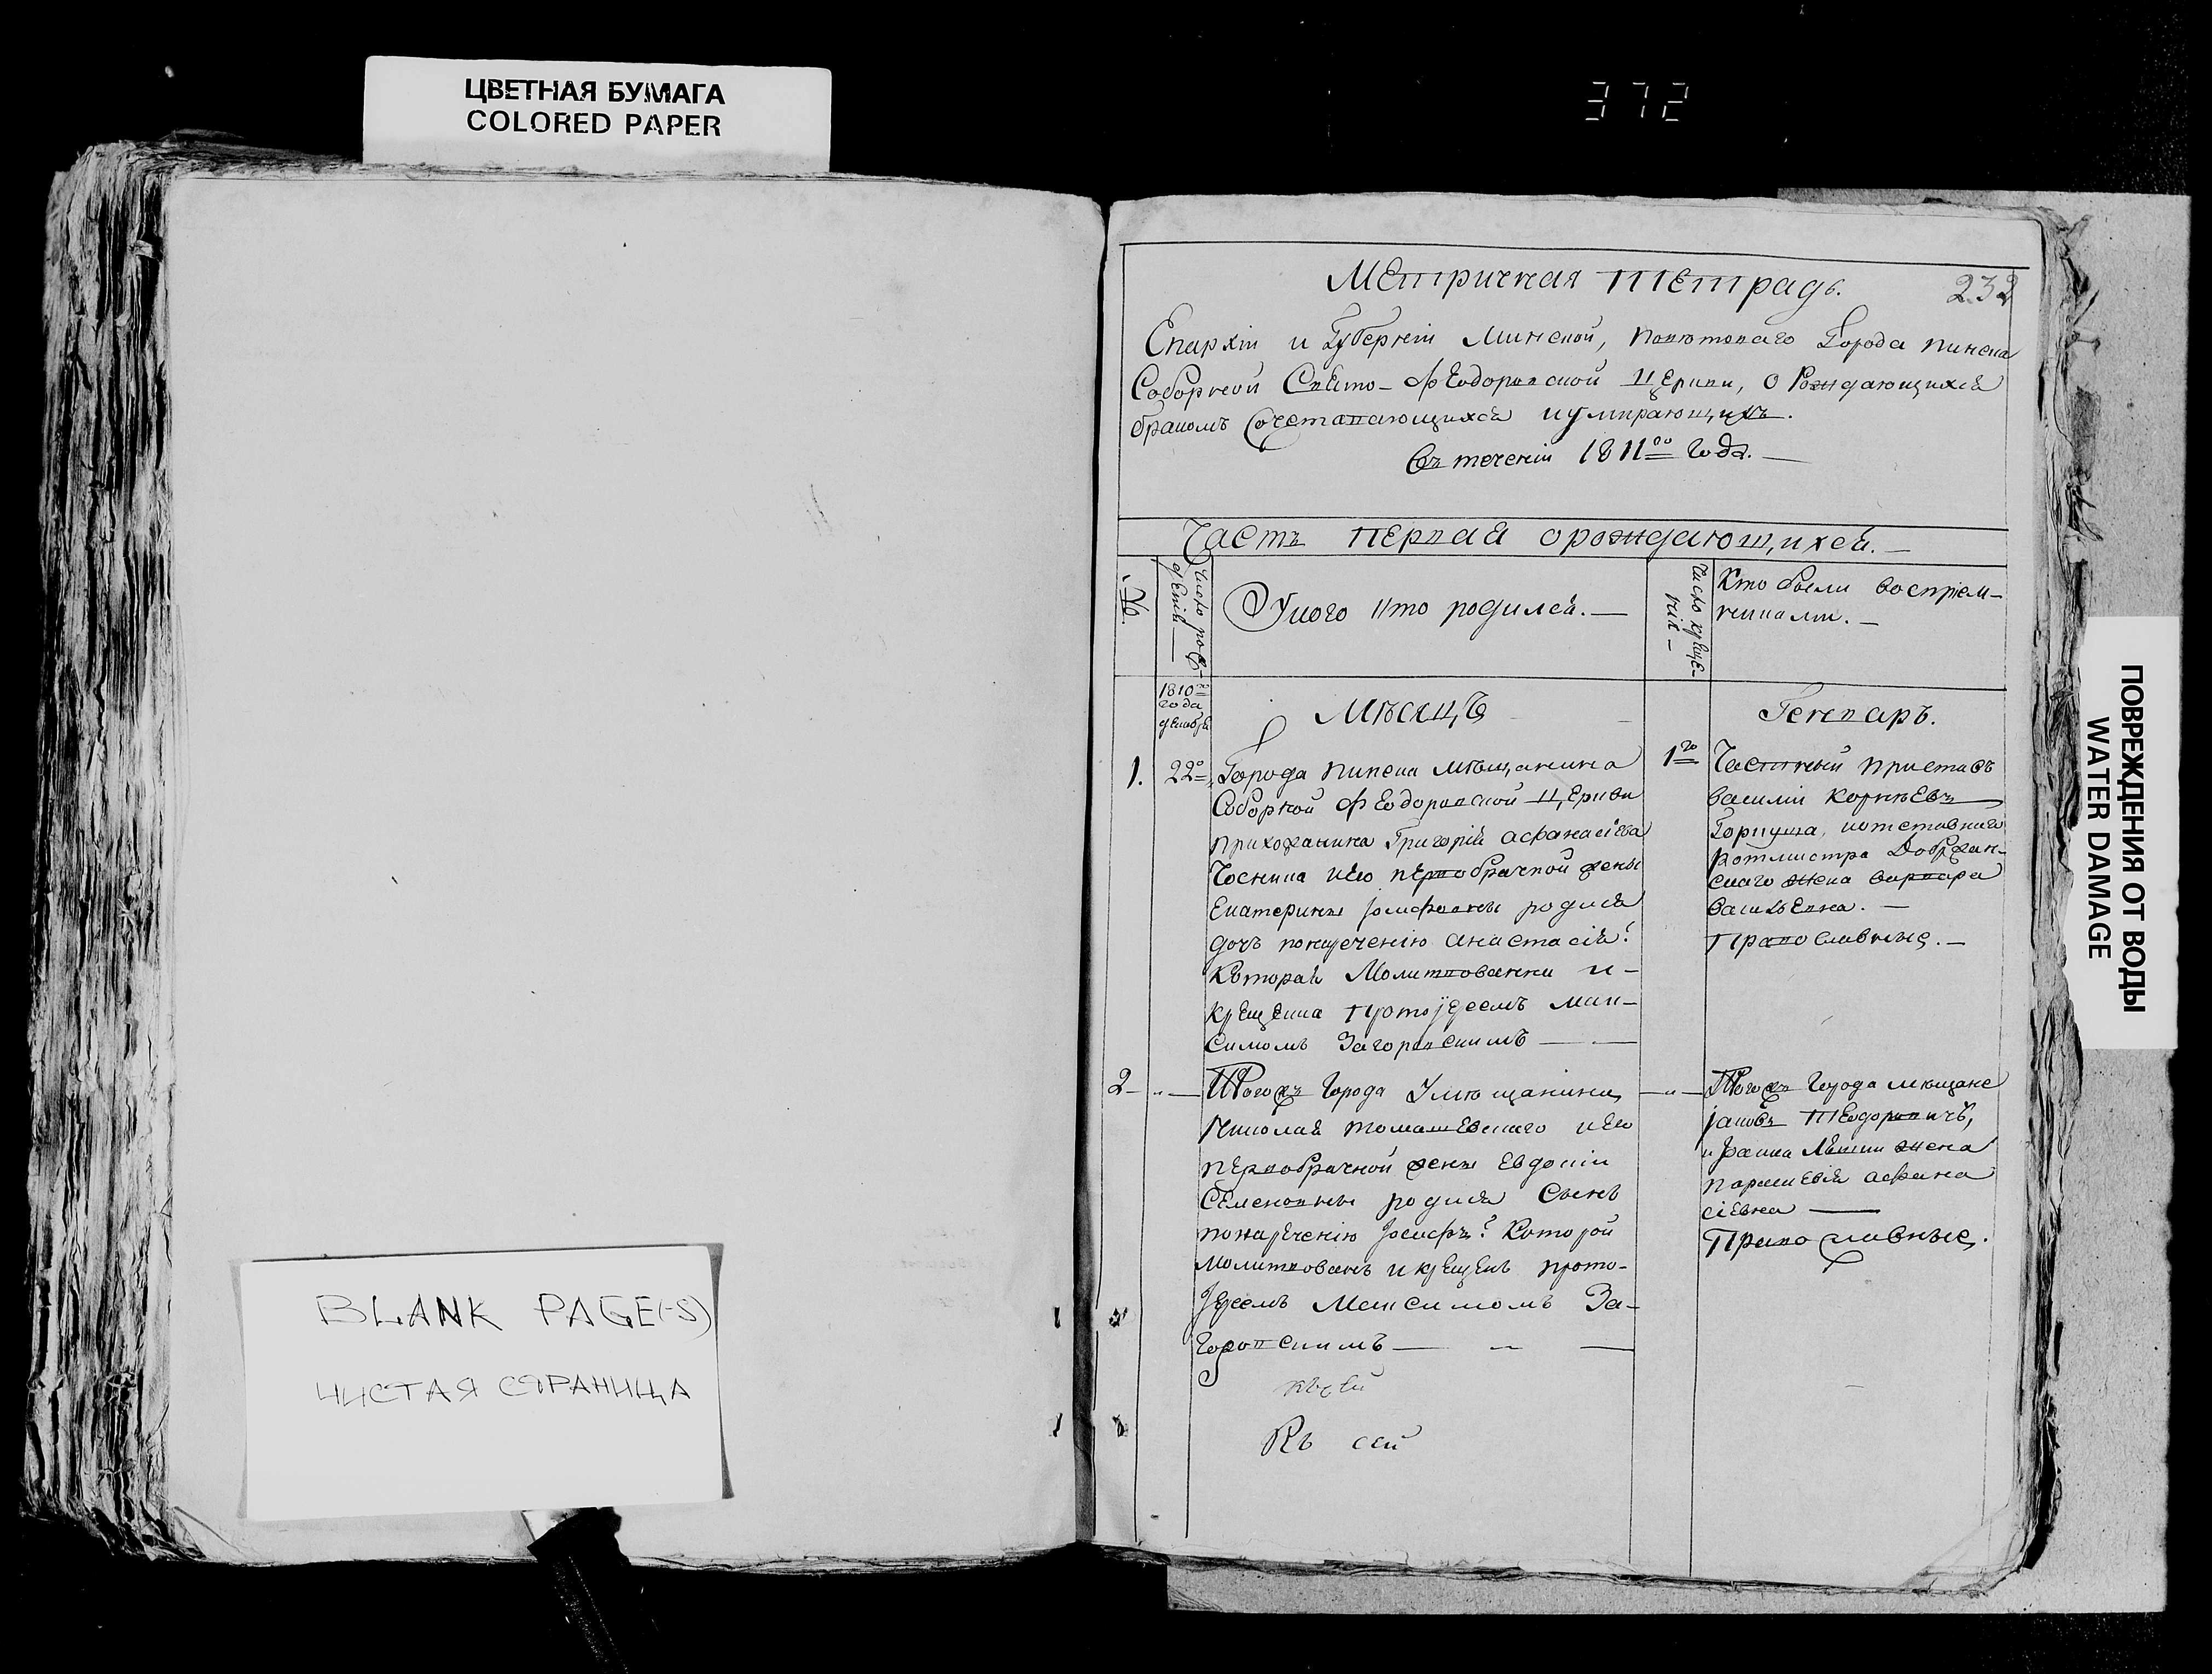 ЦВЕТНАЯ БУМАГА
COLORED PAPER
372
BLANK PAGE(-S)
ЧИСТАЯ СТРАНИЦА
Метричная тетрадь.
232
Епархіи и Губерніи Минской, поветоваго Города Пинска
Соборной Свято-Феодоровской Церкви, о Рождающихся
бракомъ Сочетавающихся и умирающихъ.
Въ теченіи 1811го Года.
Часть первая о рождающихся.
№.
Число рож-
детій
У кого кто родился.
Число креще-
ній
Кто были воспріем-
никами.
1810го
года
декабря
Мѣсяцъ
Генваръ.
1.
22о
Города Пинска мѣщанина
Соборной Феодоровской Церкви
прихожанина Григорія Афанасіева
и его первобрачной жены
Екатерины Іосифовны родися
дочь по нареченію Анастасія:
Которая Молитвованна и
крещенна протоіереемъ Мак-
симомъ Загоровскимъ
1го
Частный приставъ
Василій Корнѣевъ
и отставнаго
Ротмистра Добржан-
скаго жена Варвара
Васильевна.
Православные.
2
Тогожъ Города У мѣщанина
Николая Томашевскаго и его
первобрачной жены Евдокіи
Семеновны родися Сынъ
по нареченію Іосифъ: Которой
молитвованъ и крещенъ прото-
іереемъ Максимомъ За-
горовскимъ
Тогожъ Города мѣщане
Іаковъ Теодоровичъ,
жена
Параскевія Афана
сіевна
Православные.
къ сей
Къ сей
ПОВРЕЖДЕНИЯ ОТ ВОДЫ
WATER DAMAGE